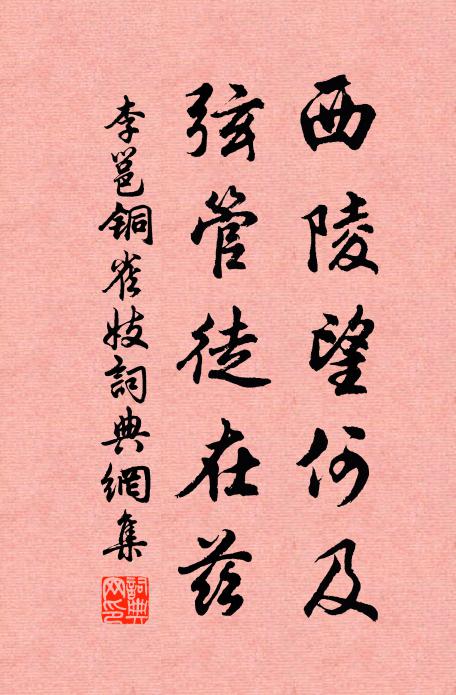 西陵望何及
弦管徒在兹
李邕铜雀妓詞典網集
詞典网印